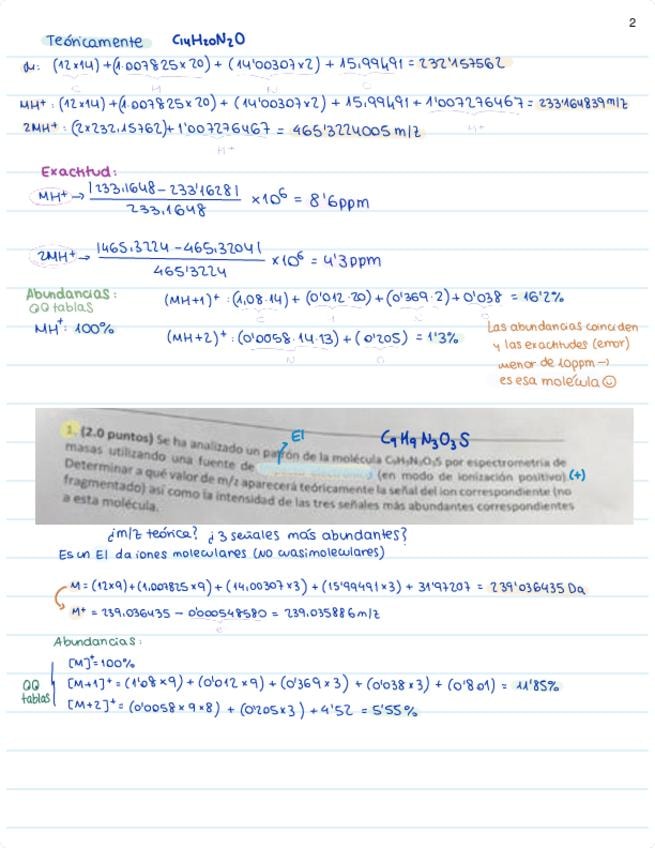 2
Teóricamente C14H20N2O
M: (12x14) + (1.007825x20) + (14'00307x2) + 15,99491 = 232'157562
C H N O
MH+: (12x14) + (1.007825x20) + (14'00307x2) + 15,99491 + 1'007276467 = 233'164839 m/z
2MH+: (2x232,15762) + 1'007276467 = 465'3224005 m/z
H+
H+
Exactitud:
MH+ → |233,1648 - 233'1628| / 233,1648 x10⁶ = 8'6ppm
2MH+ → |465,3224 - 465,3204| / 465'3224 x10⁶ = 4'3ppm
Abundancias: (MH+1)+: (1,08·14) + (0'012·20) + (0'369·2) + 0'038 = 16'2%
QQ tablas
MH+: 100% (MH+2)+: (0'0058·14·13) + (0'205) = 1'3%
Las abundancias coinciden
y las exactitudes (error)
menor de 10ppm →
es esa molécula ☺
EI C9H9N3O3S
1. (2.0 puntos) Se ha analizado un patrón de la molécula C9H9N3O3S por espectrometría de
masas utilizando una fuente de (en modo de ionización positivo). (+)
Determinar a qué valor de m/z aparecerá teóricamente la señal del ion correspondiente (no
fragmentado) así como la intensidad de las tres señales más abundantes correspondientes
a esta molécula.
¿m/z teórica? ¿3 señales más abundantes?
Es un EI da iones moleculares (no cuasimoleculares)
M = (12x9) + (1,007825x9) + (14,00307x3) + (15'99491x3) + 31'97207 = 239'036435 Da
M+ = 239,036435 - 0'000548580 = 239,035886 m/z
e-
Abundancias:
[M]+ = 100%
QQ tablas [M+1]+ = (1'08x9) + (0'012x9) + (0'369x3) + (0'038x3) + (0'801) = 11'85%
[M+2]+ = (0'0058x9x8) + (0'205x3) + 4'52 = 5'55%